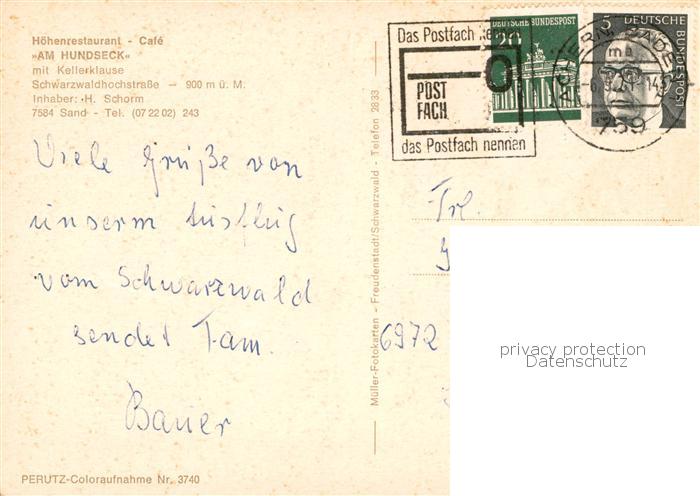 Höhenrestaurant - Café
»AM HUNDSECK«
mit Kellerklause
Schwarzwaldhochstraße — 900 m ü. M.
Inhaber: H. Schorm
7584 Sand - Tel. (0 72 02) 243
Viele Grüße von
unserm Ausflug
vom Schwarzwald
sendet Fam.
Bauer
PERUTZ-Coloraufnahme Nr. 3740
Müller-Fotokarten - Freudenstadt/Schwarzwald - Telefon 2833
Das Postfach
POST
FACH
das Postfach nennen
DEUTSCHE BUNDESPOST
20
5
DEUTSCHE
BUNDESPOST
ACHERN
ma
759
Frl.
6972
privacy protection
Datenschutz